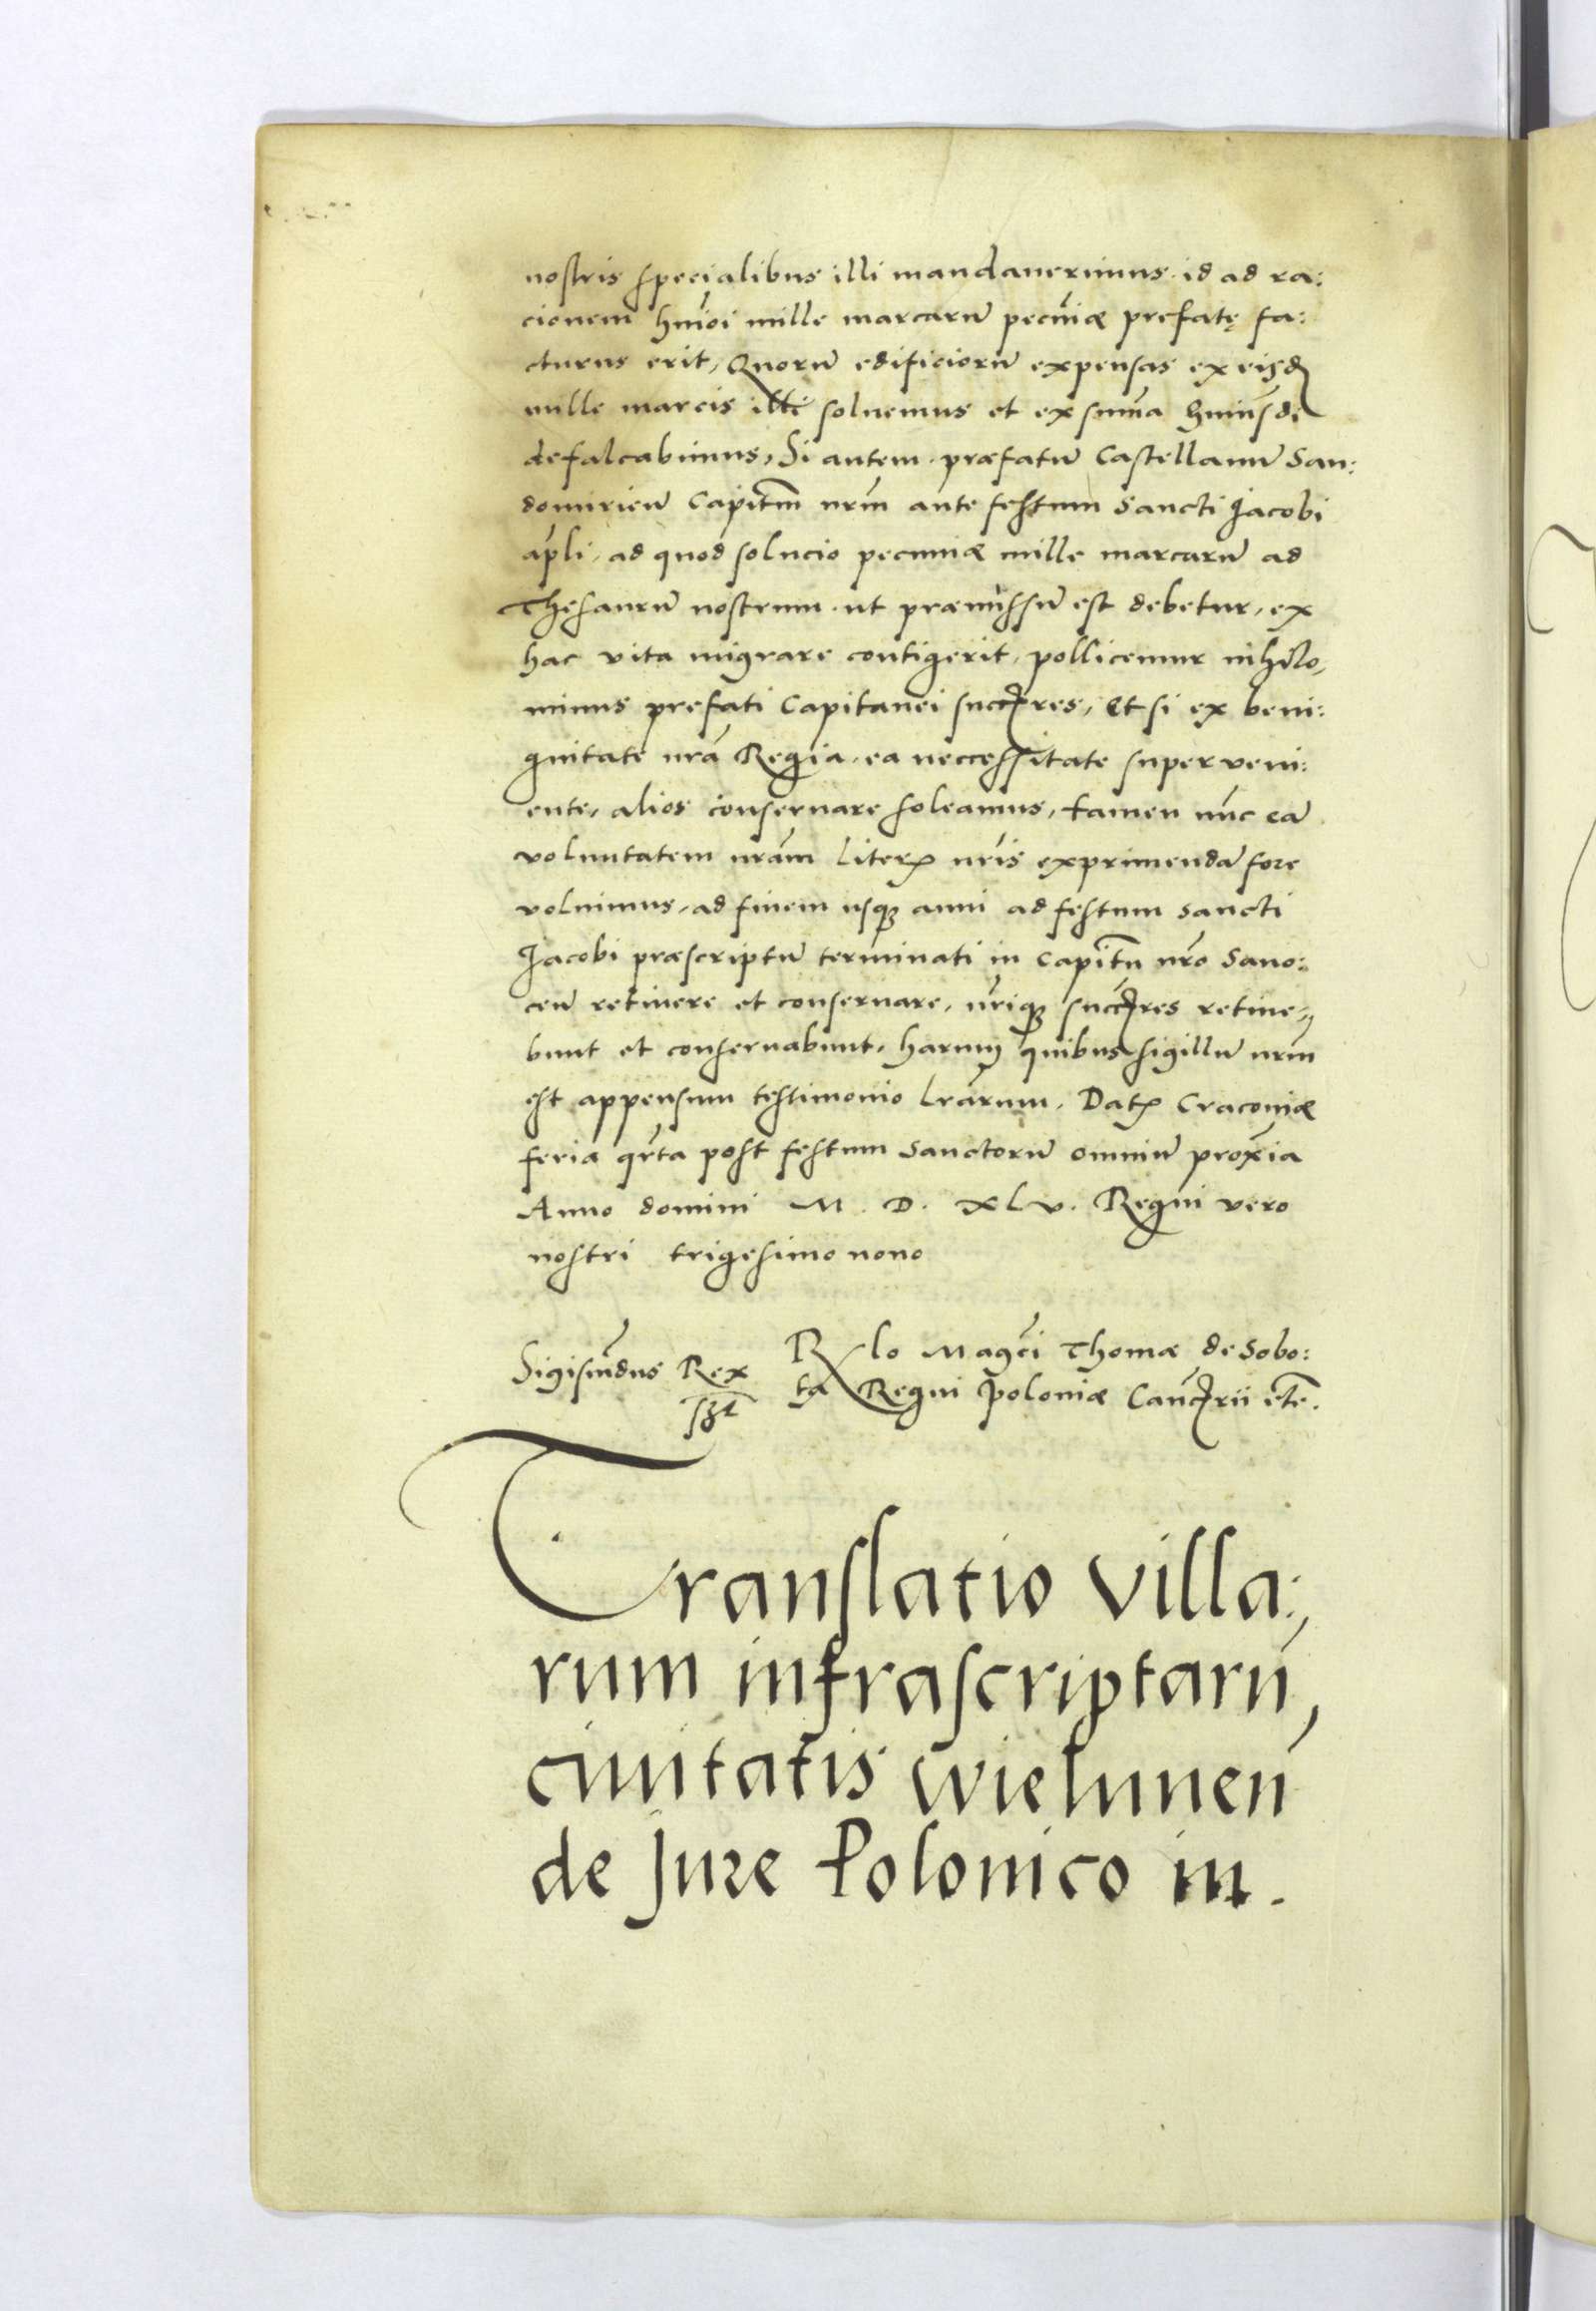 nostris specialibus illi mandauerimus. id ad ra:
cionem hmōi mille marcarū pecuīæ prefatę fa:
cturus erit, Quorū edificiorū expensas ex eisd
mille marcis illi soluemus et ex sum̄a huiusdi
defalcabimus, Si autem. præfatū Castellanū San:
domirieñ Capitm̄ nrm̄ ante festum Sancti Jacobi
apli, ad quod solucio pecuniæ mille marcarū ad
Thesaurū nostrum. ut præmissū est debetur, ex
hac vita migrare contigerit, pollicemur nihilo,
minus prefati Capitanei succres, Et si ex beni:
gnitate nrā Regia, ea neccessitate superveni:
ente, alios conseruare soleamus, tamen nūc eā
voluntatem nrām literꝭ nrīs exprimendā fore
voluimus, ad finem usqꝫ anni ad festum Sancti
Jacobi præscriptū terminati in Capitn̄ nrō Sano:
ceñ retinere et conseruare, nriqꝫ succres retine,,
bunt et conseruabunt, harum quibus sigillū nrm̄
est appensum testimonio lrārum. Datꝭ Cracouiæ
feria qrta post festum Sanctorū omniū proxīa
Anno domini M. D. XLV. Regni vero
nostri trigesimo nono
Sigismūdus Rex
sst
R lo Magci Thomæ de Sobo:
ta Regni Poloniæ Cancrii etc̄.
Translatio villa:,
rum infrascriptarū,
ciuitatis wieluneñ
de Jure Polonico in.